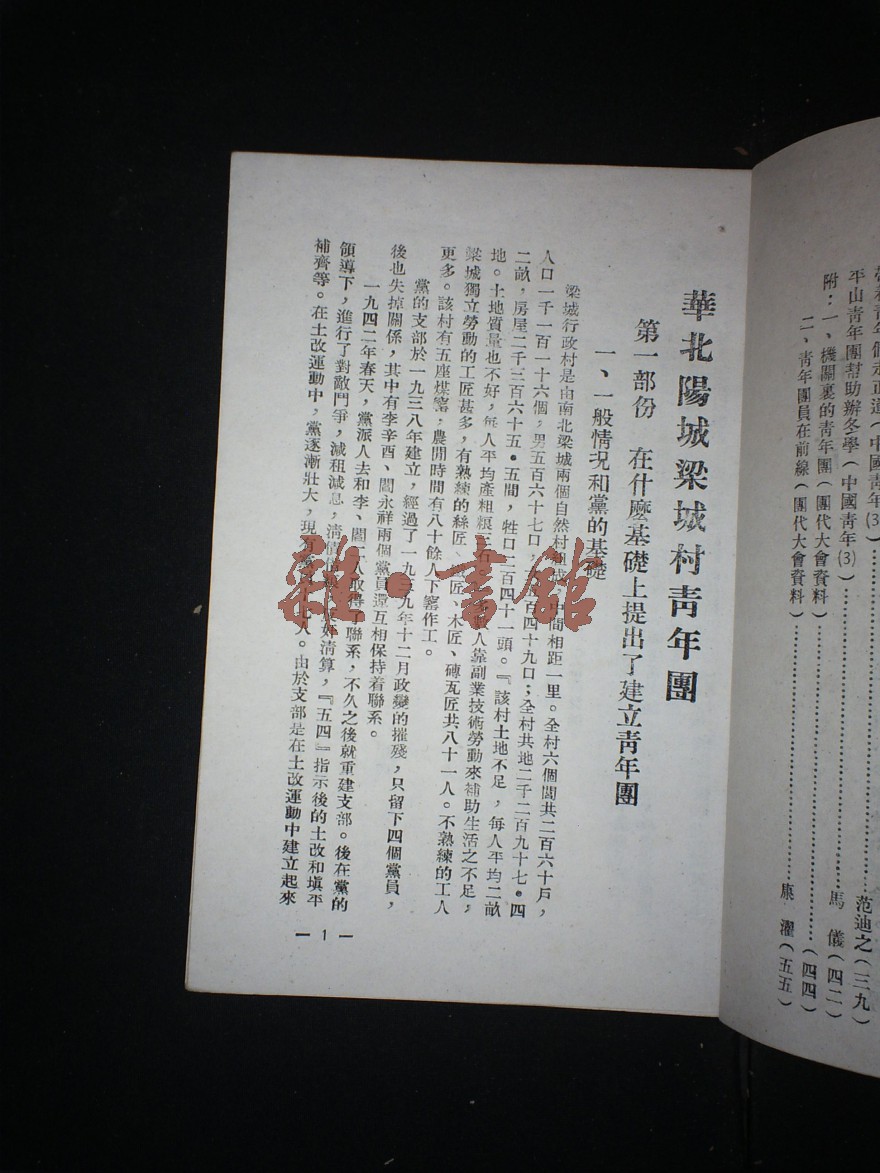 勞和青年們走正道(中國青年(3)
平山青年團幫助辦冬學(中國青年(3)……范迪之(三九)
附:一、機關裏的青年團(團代大會資料)……馬 儀(四二)
……(四四)
二、青年團員在前線(團代大會資料)……康 濯(五五)
華北陽城梁城村青年團
第一部份 在什麼基礎上提出了建立青年團
一、一般情况和黨的基礎
梁城行政村是由南北梁城兩個自然村組成,中間相距一里。全村六個閭共二百六十戶,
人口一千一百一十六個,男五百六十七口,女五百四十九口;全村共地二千二百九十七•四
二畝,房屋二千三百六十五•五間,牲口二百四十一頭。『該村土地不足,每人平均二畝
地。土地質量也不好,每人平均產粗糧三石,多數人靠副業技術勞動來補助生活之不足,
梁城獨立勞動的工匠甚多,有熟練的絲匠、匠、木匠、磚瓦匠共八十一人。不熟練的工人
更多。該村有五座煤窰,農閒時間有八十餘人下窰作工。
黨的支部於一九三八年建立,經過了一九三九年十二月政變的摧殘,只留下四個黨員,
後也失掉關係,其中有李辛酉、閻永祥兩個黨員還互相保持着聯系。
一九四二年春天,黨派人去和李、閻二人取得了聯系,不久之後就重建支部。後在黨的
領導下,進行了對敵鬥爭,減租減息,清債奸清算,『五四』指示後的土改和填平
補齊等。在土改運動中,黨逐漸壯大,現有七人。由於支部是在土改運動中建立起來
— 1 —
雜•書館